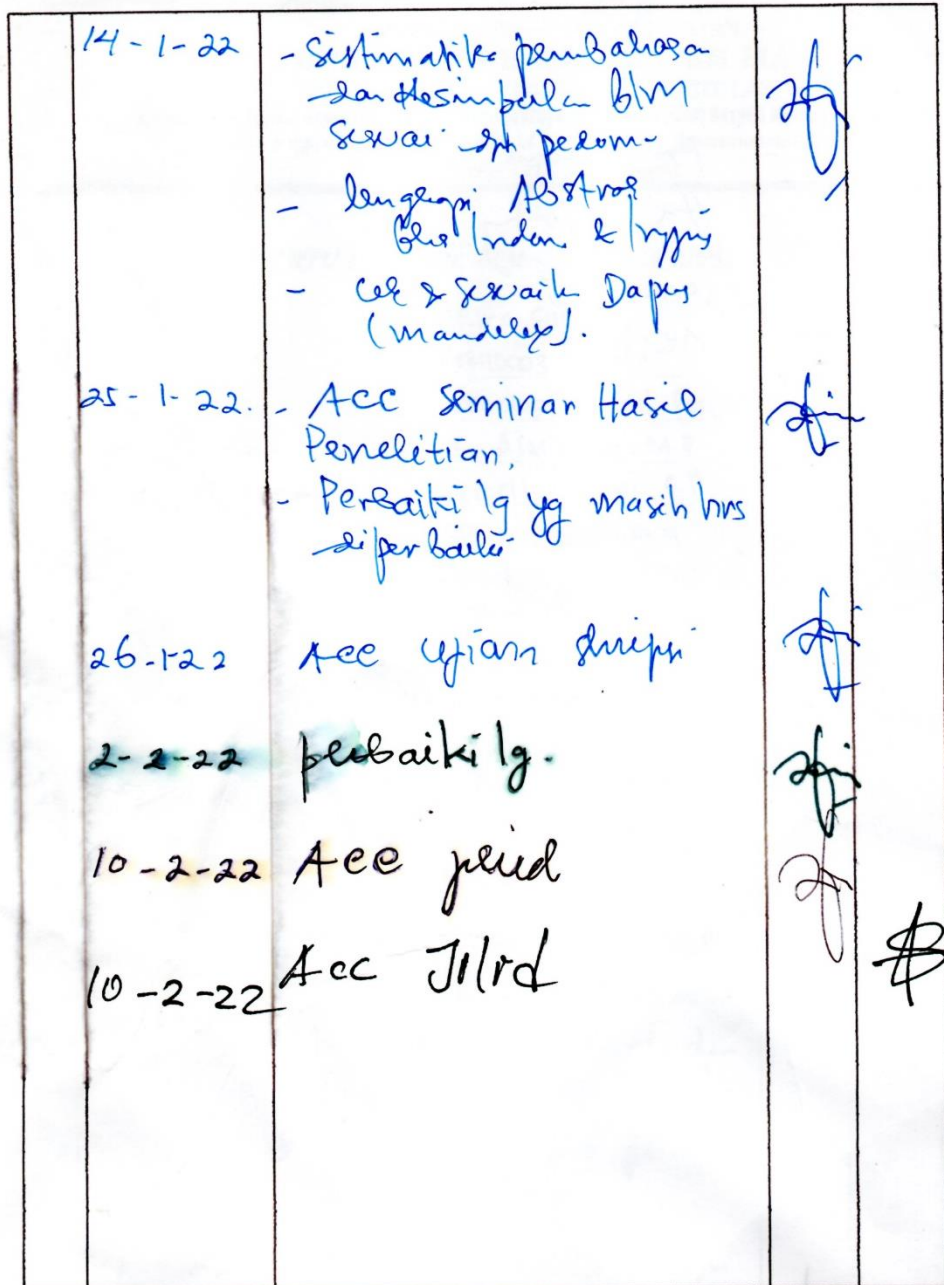 14-1-22 - Sistimatika pembahasan
dan Kesimpulan blm
sesuai dgn pedom
- lengkapi Abstrak
Bhs Indon & Inggris
- cek & sesuaik Dapus
(mandeley).
25-1-22. - Acc Seminar Hasil
Penelitian,
- Perbaiki lg yg masih hrs
diperbaiki
26-1-22 Acc ujian skripsi
2-2-22 perbaiki lg.
10-2-22 Acc jilid
10-2-22 Acc Jilid